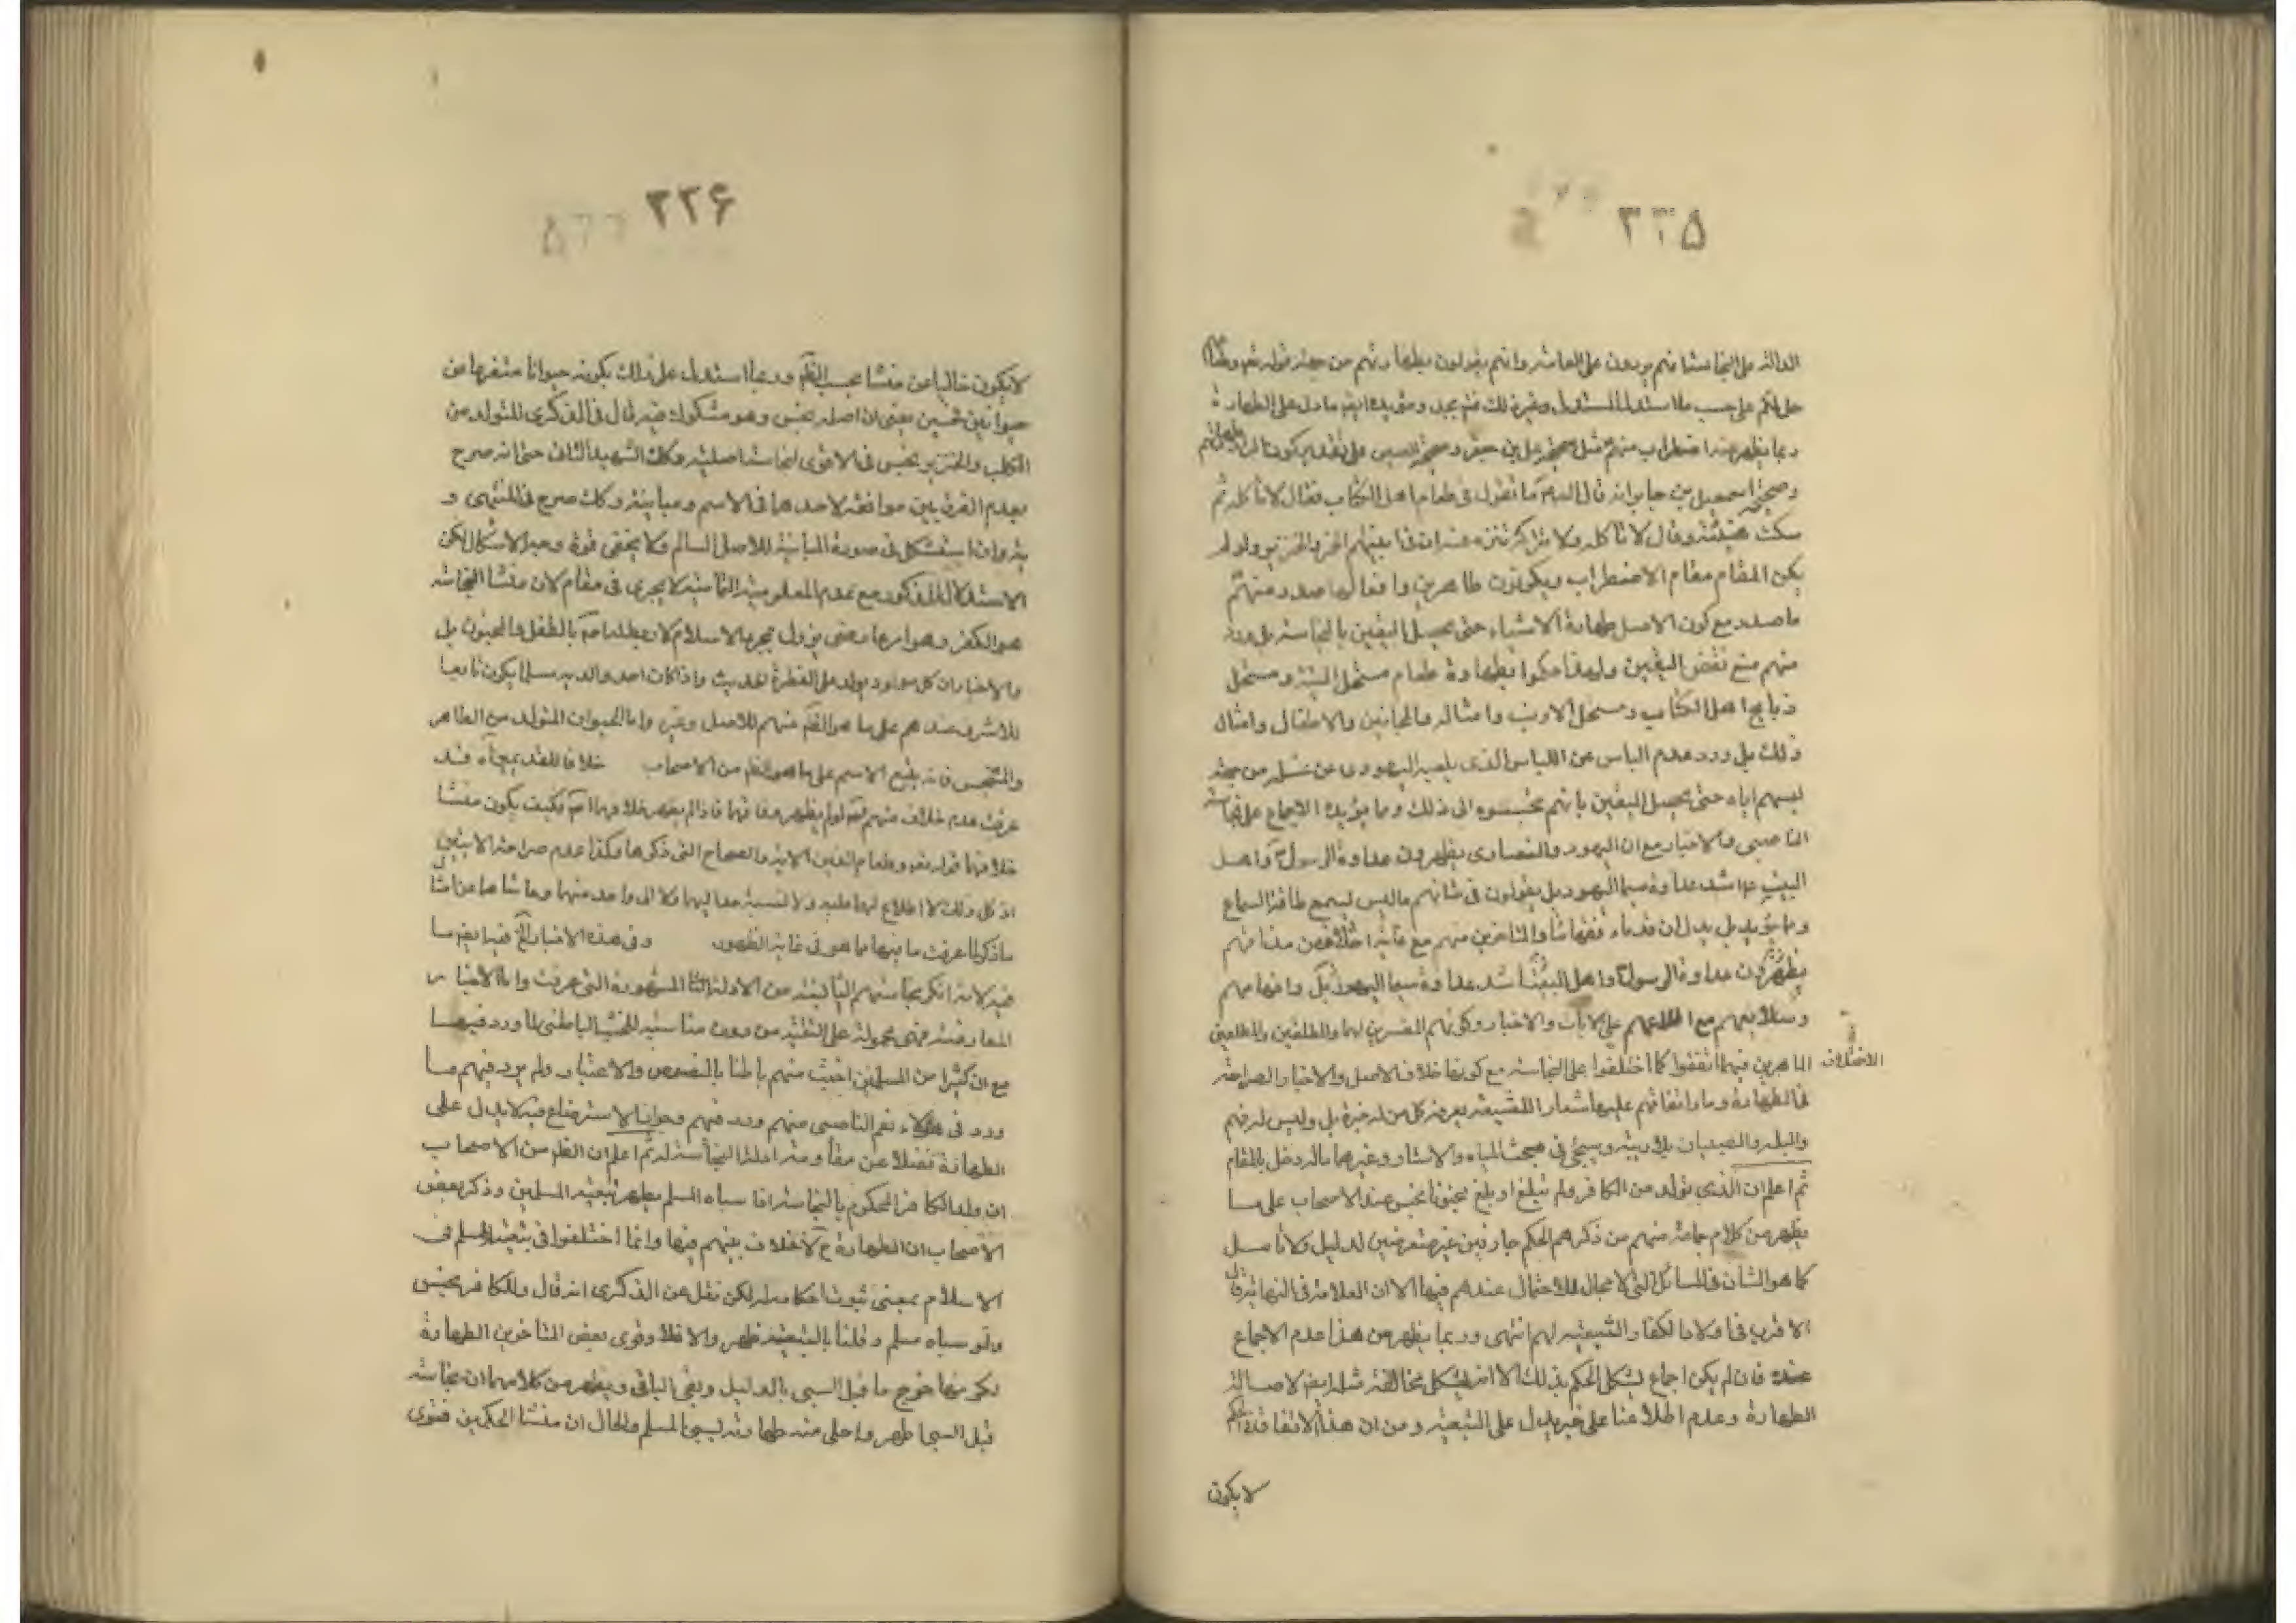 ٣٣۵
الدالة على النجاسة انهم يوردون على العامة وانهم يقولون بطهارتهم من جهة قوله تعم وطعام
حل لكم على حسب ما استدل المستدل وغير ذلك فتم يجد ومؤيده ايضا ما دل على الطهارة
وبما يظهر منه اضطراب منهم مثل صحيحة علي بن جعفر وصحيحة العيص على تقدير كون
وصحيحة اسمعيل بن جابر انه قال له ما تقول في طعام اهل الكتاب فقال لا تاكله ثم
سكت هنيئة وقال لا تاكله ولا تتركه تنزه عنه ان في انيتهم الخمر والخنزير ولو لم
يكن المقام مقام الاضطراب ويكونون طاهرين وافعالها صدد منهم
ما صدد مع كون الاصل طهارة الاشياء حتى يحصل اليقين بالنجاسة بل ورد
منهم منع نقض اليقين ولهذا حكموا بطهارة طعام مستحل الميتة ومستحل
ذبايح اهل الكتاب ومستحل الارنب وامثاله والمجانين والاطفال وامثال
ذلك بل ورد عدم الباس عن اللباس الذى يلبسه اليهودى عن غسله من جهة
لبسهم اياه حتى يحصل اليقين بانهم نجسوه الى ذلك وما يؤيده الاجماع على نجاسة
الناصبى والاخبار مع ان اليهود والنصارى يظهرون عداوة الرسول ص واهل
البيت ع اشد عداوة سيما اليهود بل يقولون في شانهم ما ليس لسمع طاقة السماع
وما يؤيد بل يدل ان قدماء فقهائنا والمتاخرين منهم مع غاية اختلافهم من
يظهرون عداوة الرسول ص واهل البيت اشد عداوة سيما اليهود
مع اطلاعهم على الايات والاخبار وكونهم المفسرين لهما والمطلعين
الاختلاف
الماهرين فيهما اتفقوا كما اختلفوا على النجاسة مع كونها خلاف الاصل والاخبار الصراحة
في الطهارة وما واتفاقهم عليها شعار الشيعة يعرفه كل من له خبرة بل وليس له فهم
والبله والصبيان بلا ريبة وسيجئ في مبحث المياه والاسئار وغيرها ما له دخل بالمقام
ثم اعلم ان الذى يتولد من الكافر ولم يبلغ او بلغ مجنونا نجس عند الاصحاب على ما
يظهر من كلام جماعة منهم من ذكرهم الحكم جازمين غير متعرضين لدليل ولا تامل
كما هو الشان في المسائل التى لا مجال للاحتمال عندهم فيها الا ان العلامة في النهاية قال
الاقرب في اولاد الكفار التبعية لهم انتهى وربما يظهر من هذا عدم الاجماع
عنده فان لم يكن اجماع يشكل الحكم بذلك الا انه يشكل مخالفته ايضا لاصالة
الطهارة وعدم اطلاعنا على خبر يدل على التبعية ومن ان هذا الاتفاق
لا يكون
٣٣۶
لا يكون خاليا عن منشا بحسب الظاهر وربما استدل على ذلك بكونه حيوانا متفرعا من
حيوانين نجسين يعنى ان اصله نجس وهو مشكوك فيه قال في الذكرى المتولد من
الكلب والخنزير نجس في الاقوى لنجاسة اصليه وكك الشهيد الثانى حتى انه صرح
بعدم الفرق بين موافقته لاحدهما في الاسم ومباينته وكك صرح في المنتهى و
يه وان استشكل في صورة المباينة للاصل السالم ولا يخفى قوة وجه الاشكال لكن
الاستدلال المذكور مع عدم المعلومية التامية لا يجرى في مقام لان منشا النجاسة
هو الكفر وهو امر معنى يزول بمجرد الاسلام بالطفل والمجنون بل
والاخبار ان كل مولود يولد على الفطرة الحديث واذا كان احد والديه مسلما يكون تابعا
للاشرف عندهم على ما هو الظاهر منهم للاصل وغيره واما الحيوان المتولد من الطاهر
والنجس فانه يتبع الاسم على ما هو الظاهر من الاصحاب خلافا للقديمين قد
عرفت عدم خلاف منهم لو لم يظهر وفاقهما فاذا لم يظهر خلافهما فكيف يكون منشا
خلافهما قوله تعم وطعام الذين الاية والصحاح التى ذكرها وكذا عدم صراحة الايتين
اذ كل ذلك لا اطلاع لهما عليه ولا نسبة احد اليهما ولا الى واحد منهما وحاشاهما عن امثال
ما ذكر لما عرفت ما فيها مما هو في غاية الظهور وفي هذه الاخبار الخ فيه ايضا ما
فيه لانه انكر نجاستهم الثابتة من الادلة المشهورة التى عرفت واما الاخبار
المعارضة فهى محمولة على التقية من دون مناسبة للخبث الباطنى لما ورد فيها
مع ان كثيرا من المسلمين اخبث منهم باطنا بالنصوص والاعتبار ولم يرد فيهم ما
ورد في هؤلاء نعم الناصبى منهم ورد فيهم وجواز الاسترضاع فيه لا يدل على
الطهارة فضلا عن مقاومة ادلة النجاسة ثم اعلم ان الظاهر من الاصحاب
ان ولد الكافر المحكوم بالنجاسة اذا سباه المسلم يطهر تبعية المسلمين وذكر بعض
الاصحاب ان الطهارة ح لا خلاف بينهم فيها وانما اختلفوا في تبعية المسلم في
الاسلام بمعنى ثبوت احكامه له لكن نقل عن الذكرى انه قال ولد الكافر نجس
ولو سباه مسلم وقلنا بالتبعية طهر والا فلا وقوى بعض المتاخرين الطهارة
لكونها خرج ما قبل السبى بالدليل وبقى الباقى ويظهر من كلامهما ان نجاسته
قبل السبى اظهر واجلى منه طهارته بسبى المسلم والحال ان منشا الحكمين فتوى